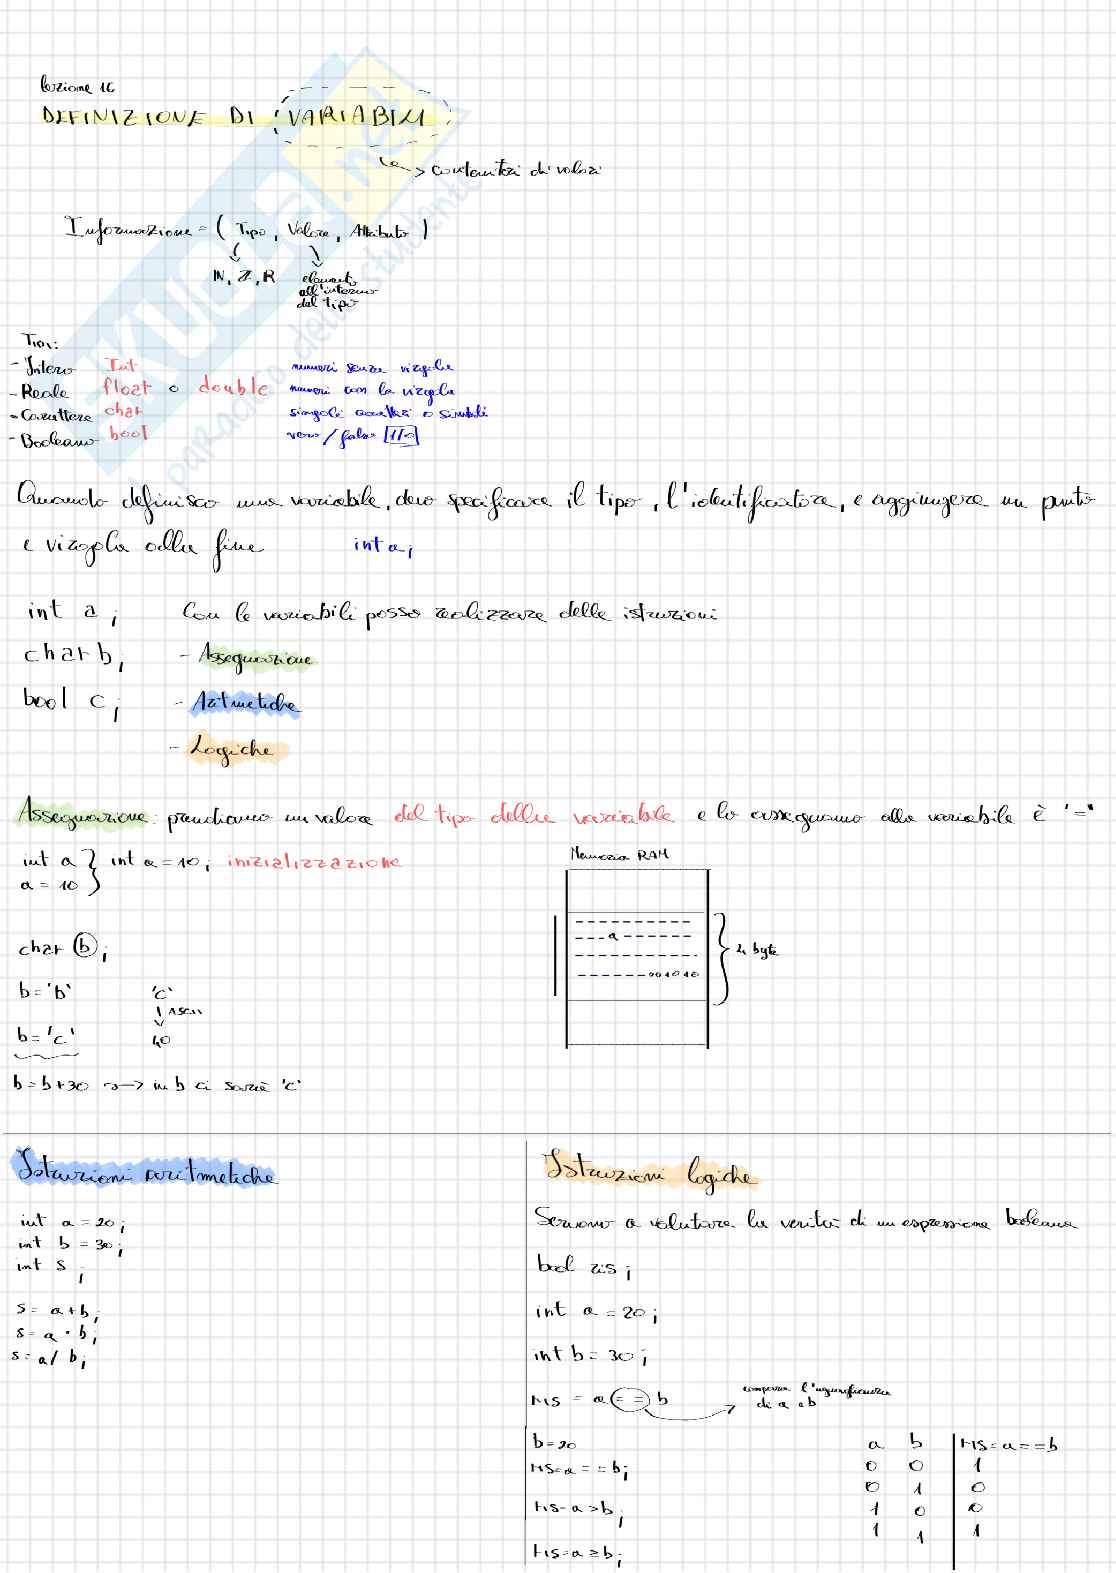 Lezione 16
DEFINIZIONE DI VARIABILI
contenitori di valori
Informazione = ( Tipo, Valore, Attributo )
N, Z, R
elemento
all'interno
del tipo
Tipi:
- Intero Int numeri senza virgola
- Reale float o double numeri con la virgola
- Carattere char singoli caratteri o simboli
- Booleano bool vero / falso 1/0
Quando definisco una variabile, devo specificare il tipo, l'identificatore, e aggiungere un punto
e virgola alla fine int a;
int a; Con le variabili posso realizzare delle istruzioni
char b; - Assegnazione
bool c; - Aritmetiche
- Logiche
Assegnazione: prendiamo un valore del tipo della variabile e lo assegnamo alla variabile è '='
int a } int a = 10; inizializzazione
a = 10
Memoria RAM
a
001010
4 byte
char b;
b = 'b' 'c'
ASCII
b = 'c' 40
b = b+30 → in b ci sarà 'c'
Istruzioni aritmetiche
int a = 20;
int b = 30;
int s;
s = a+b;
s = a · b;
s = a / b;
Istruzioni logiche
Servono a valutare la verità di un espressione booleana
bool ris;
int a = 20;
int b = 30;
ris = a == b
di a e b
b = 20
ris = a == b;
ris = a > b;
ris = a ≥ b;
a b ris = a == b
0 0 1
0 1 0
1 0 0
1 1 1
SKUOLA.net
il paradiso dello studente